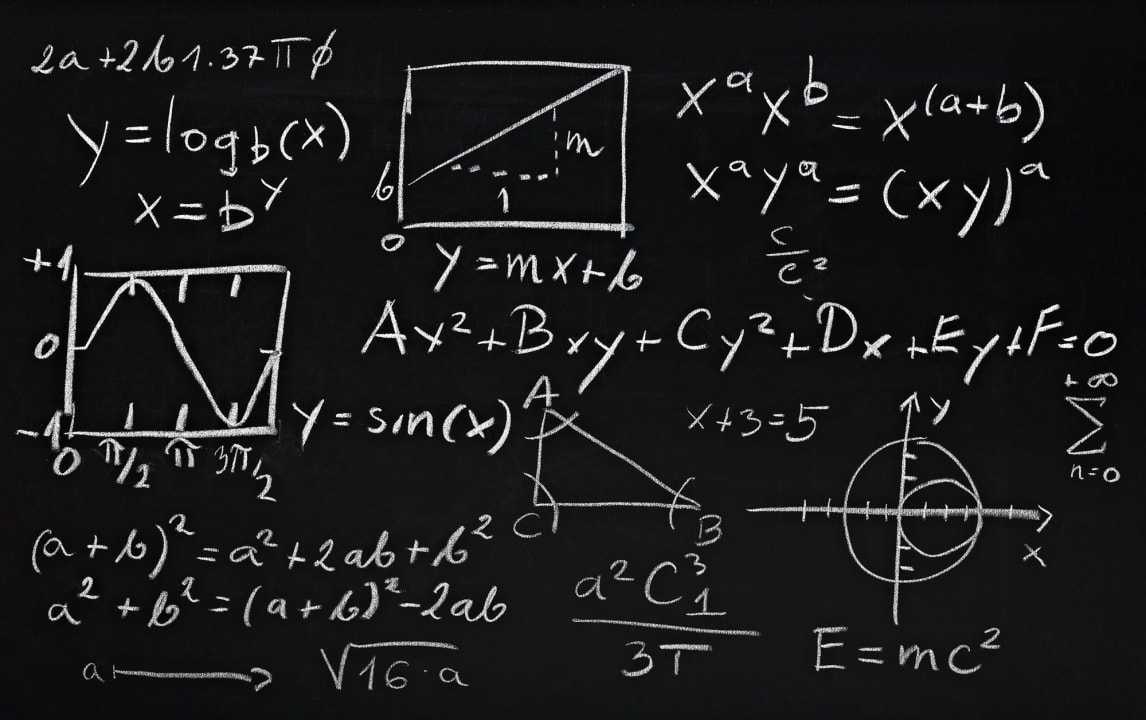 2a+2b1.37πφ
y=log_b(x)
x=b^y
m
b
1
0
y=mx+b
x^a x^b = x^(a+b)
x^a y^a = (xy)^a
c/c²
+1
0
-1
0 π/2 π 3π/2
y=sin(x)
Ay²+Bxy+Cy²+Dx+Ey+F=0
A
C
B
x+3=5
+∞
Σ
n=0
y
x
(a+b)²=a²+2ab+b²
a²+b²=(a+b)²-2ab
a →
√16·a
a²C³₁
3T
E=mc²